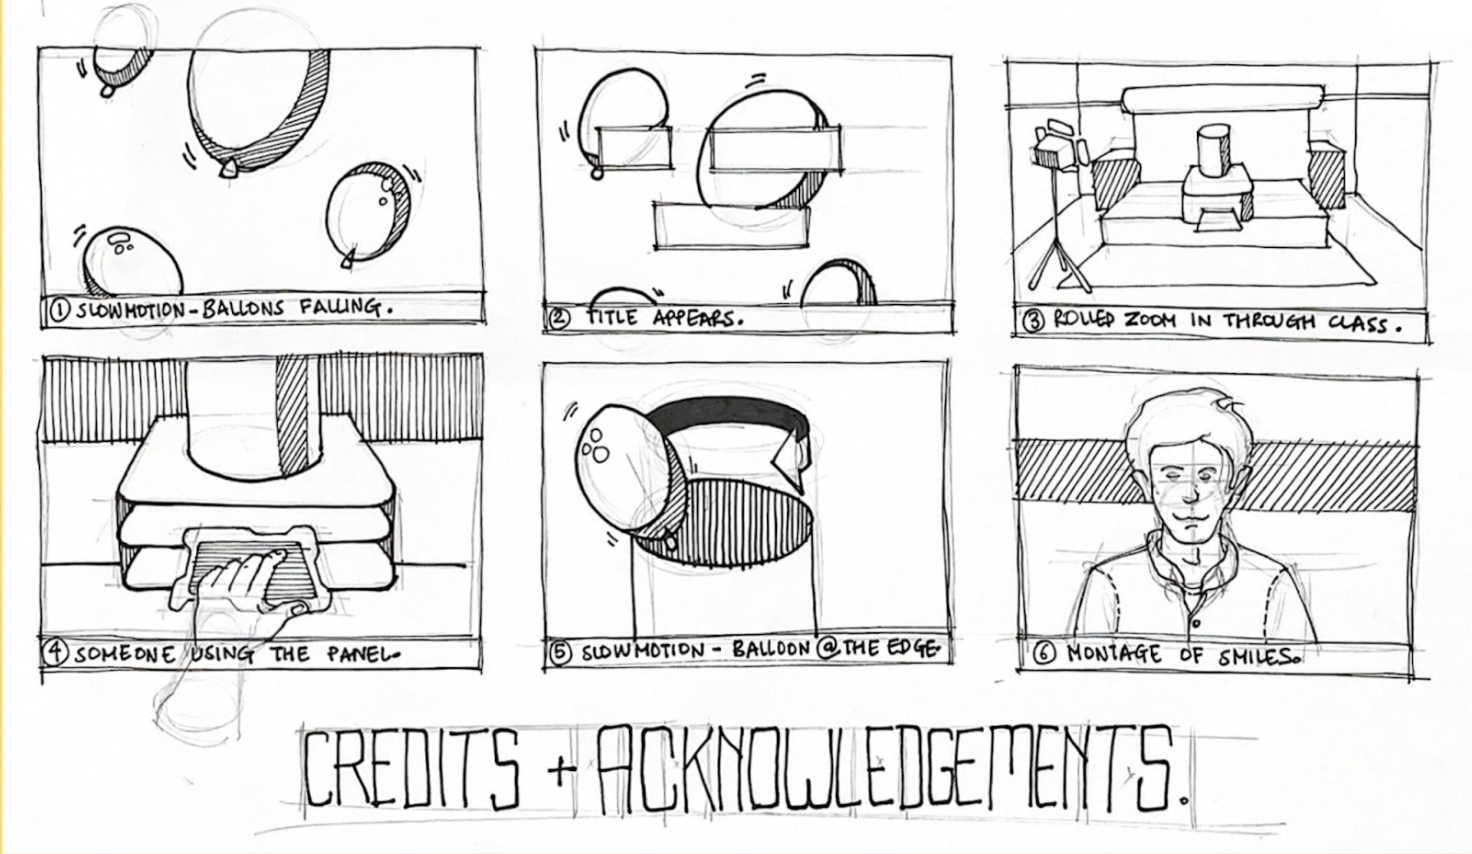 ① SLOWMOTION-BALLONS FALLING.
② TITLE APPEARS.
③ ROLLED ZOOM IN THROUGH CLASS.
④ SOMEONE USING THE PANEL.
⑤ SLOWMOTION - BALLOON @ THE EDGE
⑥ MONTAGE OF SMILES.
CREDITS + ACKNOWLEDGEMENTS.